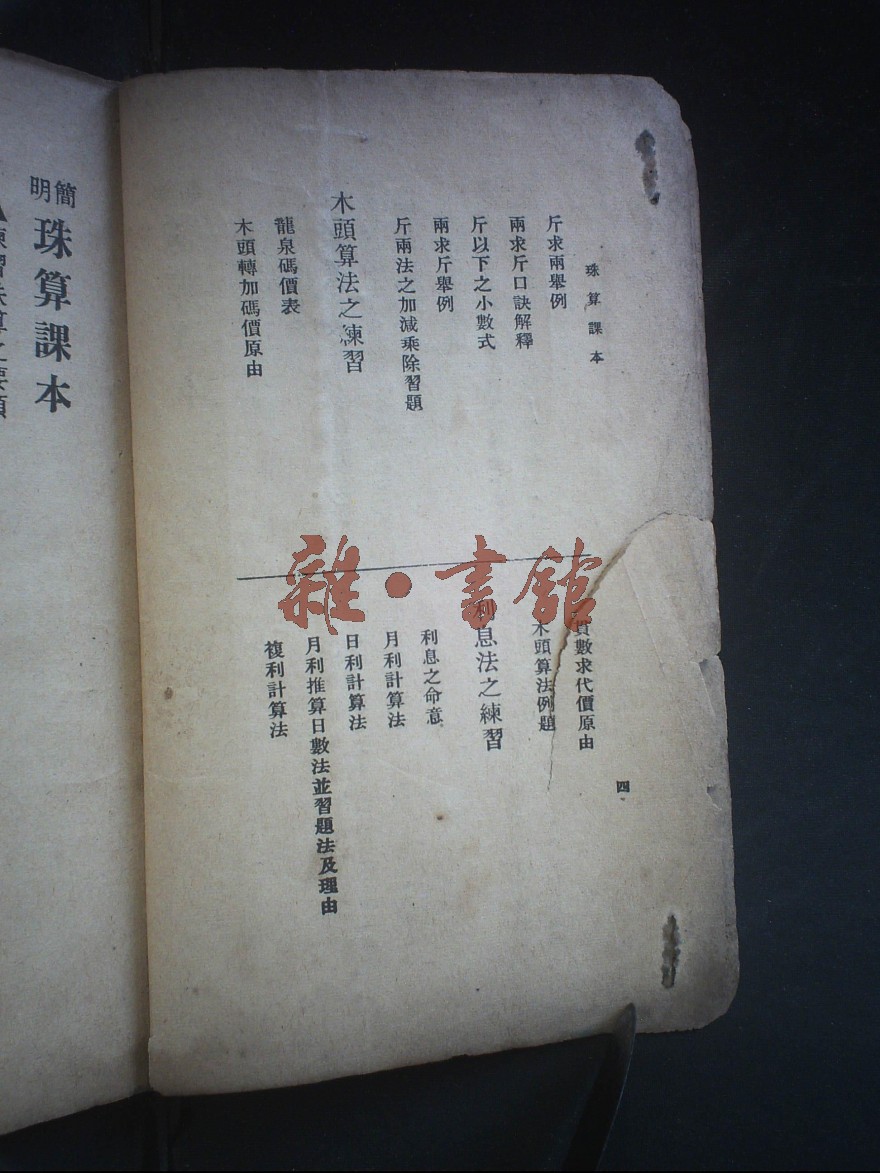 珠算課本
斤求兩舉例
兩求斤口訣解釋
斤以下之小數式
兩求斤舉例
斤兩法之加減乘除習題
木頭算法之練習
龍泉碼價表
木頭轉加碼價原由
貫數求代價原由
木頭算法例題
利息法之練習
利息之命意
月利計算法
日利計算法
月利推算日數法並習題法及理由
複利計算法
四
雜·書館
簡明
珠算課本
練習珠算之要領